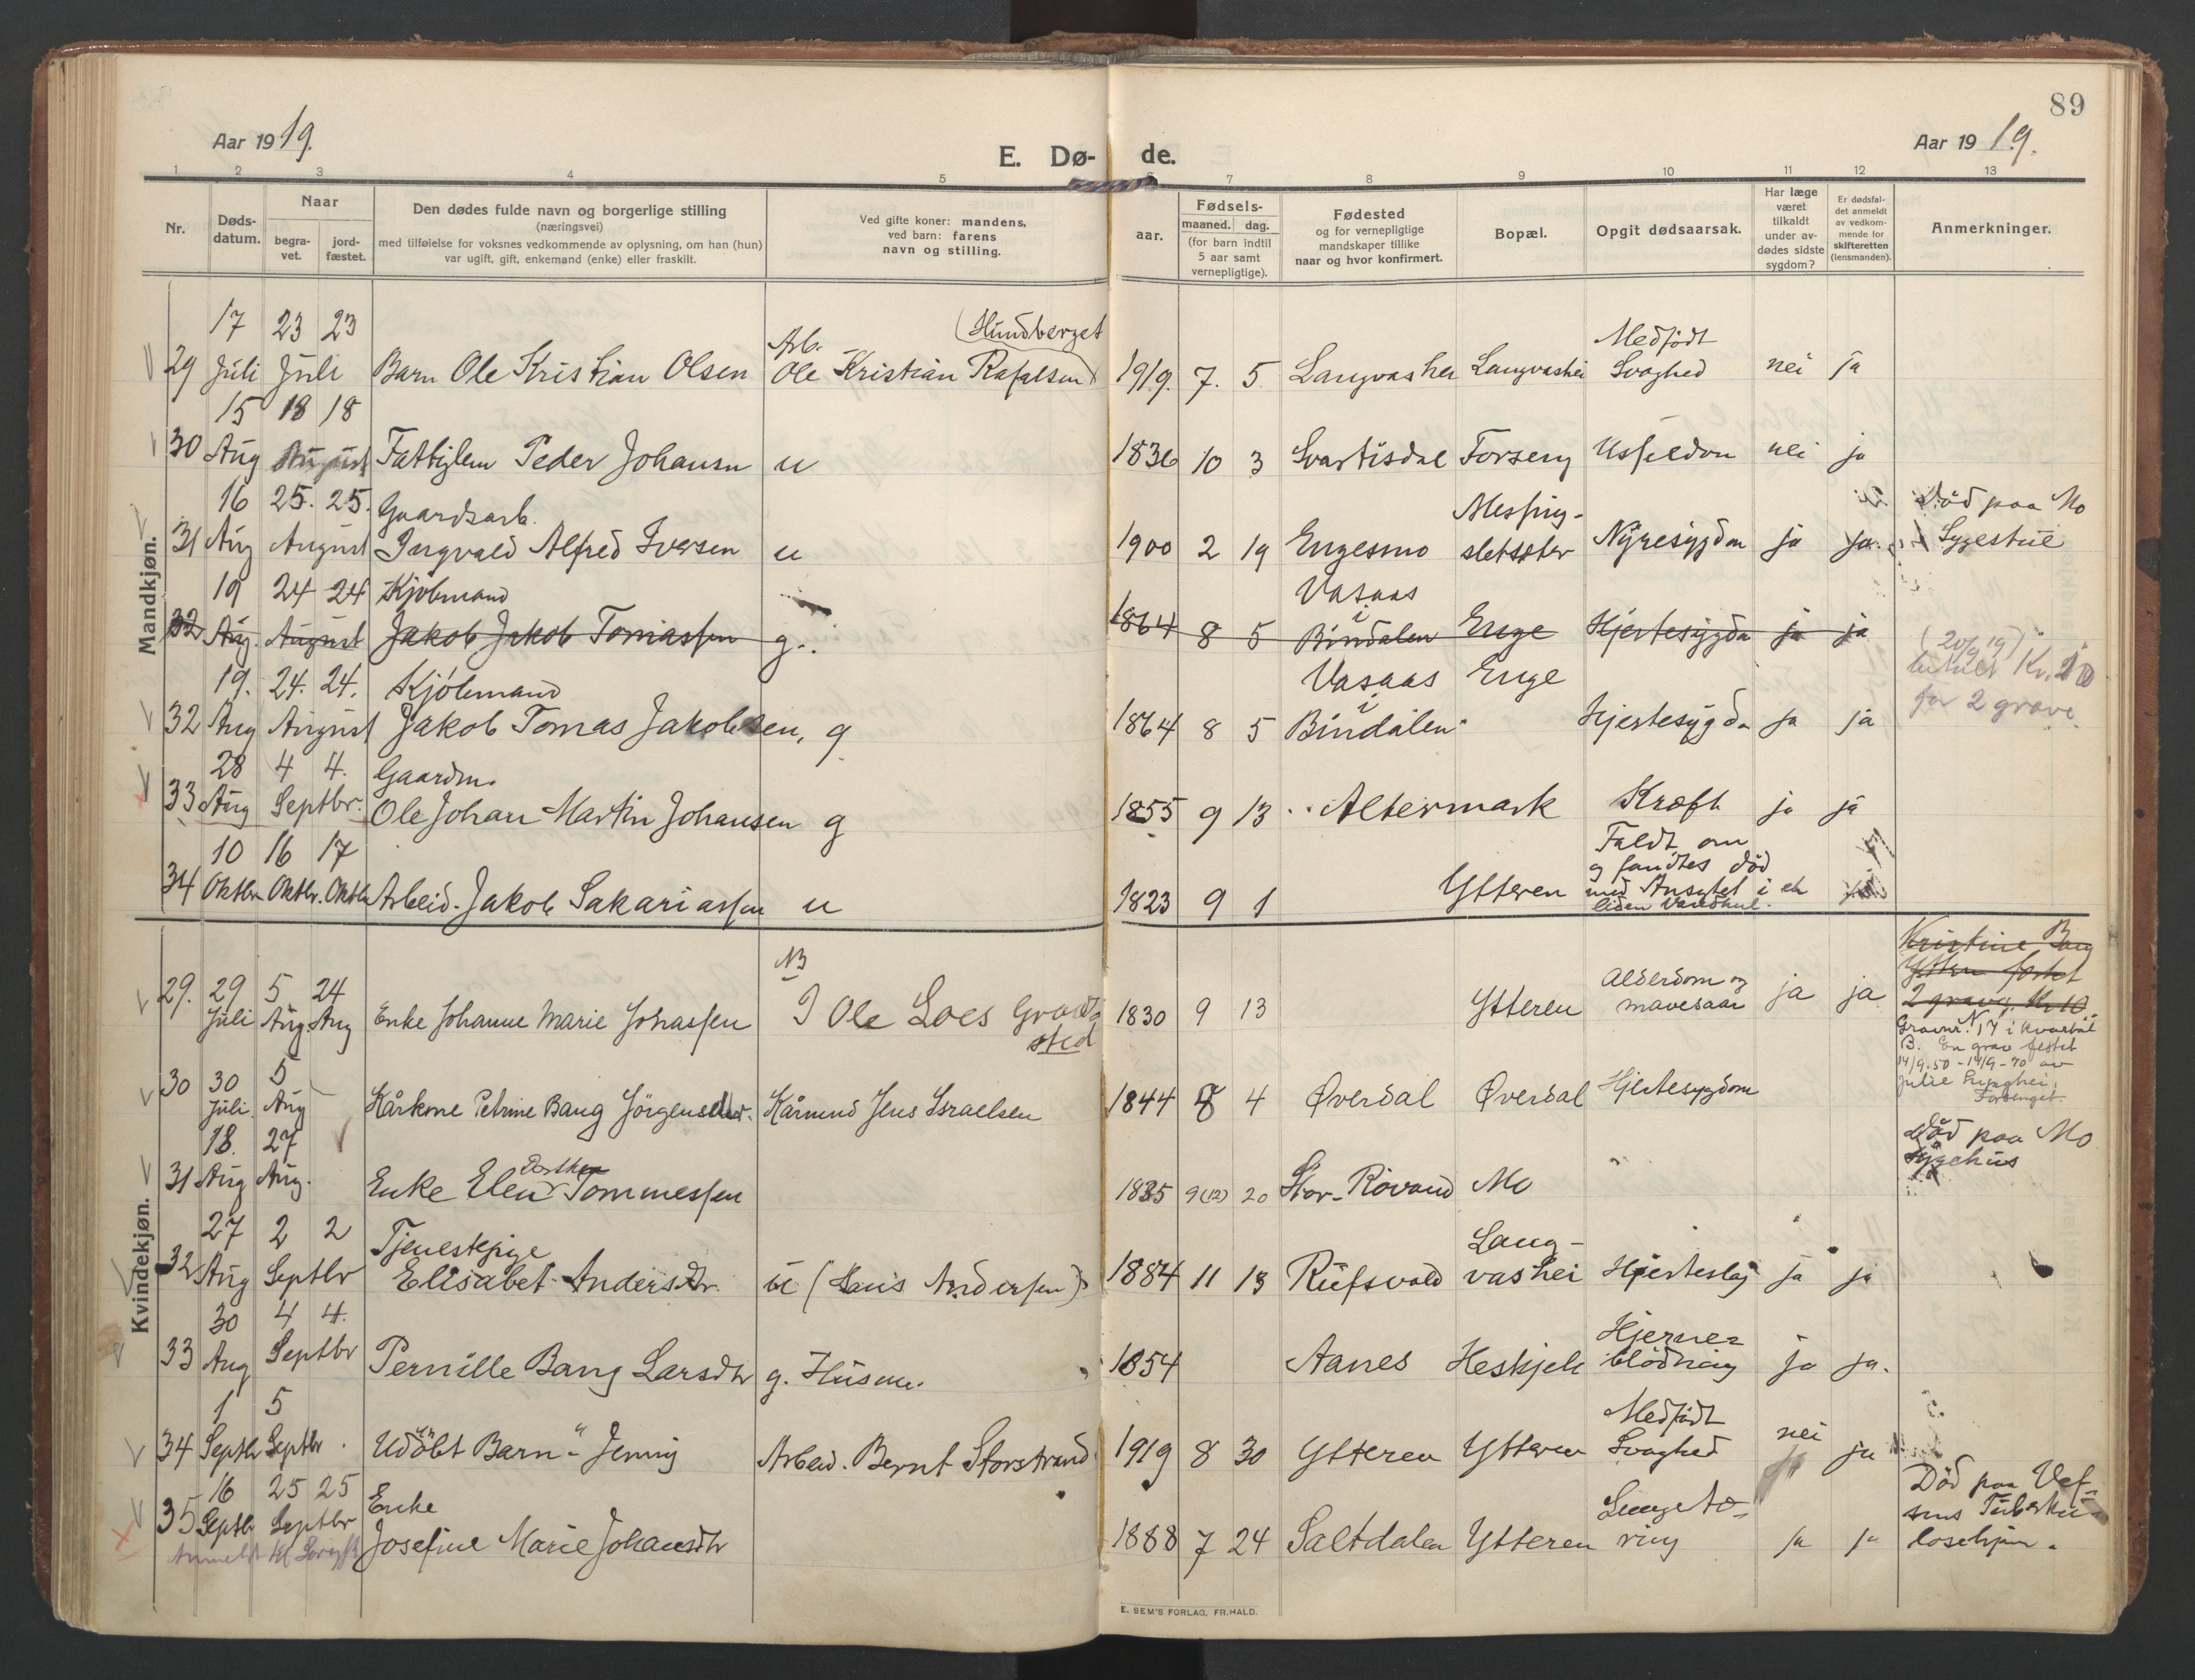 89
Aar 1919.
E. Dø-
de.
Aar 1919.
1 2 3 4 5 7 8 9 10 11 12 13
Nr.
Døds-
datum.
Naar
begra-
vet.
jord-
fæstet.
Den dødes fulde navn og borgerlige stilling
(næringsvei)
med tilføielse for voksnes vedkommende av oplysning, om han (hun)
var ugift, gift, enkemand (enke) eller fraskilt.
Ved gifte koner: mandens,
ved barn: farens
navn og stilling.
Fødsels-
aar.
maaned. dag.
(for barn indtil
5 aar samt
vernepligtige).
Fødested
og for vernepligtige
mandskaper tillike
naar og hvor konfirmert.
Bopæl.
Opgit dødsaarsak.
Har læge
været
tilkaldt
under av-
dødes sidste
sygdom?
Er dødsfal-
det anmeldt
av vedkom-
mende for
skifteretten
(lensmanden).
Anmerkninger.
Mandkjøn.
17 23 23 Arb. (Hundberget Medfødt
29 Juli Juli Barn Ole Kristian Olsen Ole Kristian Rafalsen) 1919. 7. 5. Langvashei Langvashei Svaghed nei ja
15 18 18
30 Aug August Fattiglem Peder Johansen u 1836 10 3 Svartisdal Forseng nei ja
16 25. 25. Gaardsarb. Messing- Död paa Mo
31 Aug August Ingvald Alfred Iversen u 1900 2 19 Engesmo Nyresygdom ja ja. Sygestue
19 24 24 Kjöbmand Vasaas
32 Aug. August Jakob Jakob Tomassen g. 1864 8 5 i Bindalen Enge Hjertesygdo ja ja
(20/9 19)
betalt Kr. 10
for 2 grave.
19. 24. 24. Kjöbmand Vasaas Enge
32 Aug August Jakob Tomas Jakobsen, g 1864 8 5 i Bindalen Hjertesygdo ja ja
28 4 4. Gaardm.
33 Aug Septbr. Ole Johan Martin Johansen g 1855 9 13 Altermark Kræft ja ja
10 16 17 Faldt om
og fandtes död
34 Oktbr Oktbr. Oktbr Arbeid. Jakob Sakariassen u 1823 9 1 Ytteren med Ansigtet i et
liden Vandhul.
Kvindekjøn.
NB
29. 29 Juli 5 Aug. 24 Aug Enke Johanne Marie Johassen I Ole Loes Gravsted 1830 9 13 Ytteren Alderdom og mavesaar ja ja
Kristine Bang
Ytteren festet
2 grave, Kr 10
Gravnr. N 17 i kvartal
B. En grav festet
14/9.50 - 14/9-70 av
Julie Lunghei,
Forsenget.
30 30 Juli 5 Aug Kårkone Petrine Baug Jörgensdtr. Kårmand Jens Israelsen 1844 8 4 Øverdal Øverdal Hjertesygdom
18. 27 Död paa Mo
Sygehus
31 Aug Aug. Enke Elen Dorthea Tommessen 1835 9 (12) 20 Stor-Røvand Mo
27 2 2 Tjenestpige Lang-
32 Aug Septbr Elisabet Andersdtr. u (Hans Andersen) 1884 11 13 Rufsvold vashei Hjerteslag ja ja
30 4 4. Hjerne=
33 Aug Septbr Pernille Bang Larsdtr g. Husm. 1854 Aanes Heskjel blödning ja ja.
1 5 Medfødt
34 Septbr Septbr Udöbt Barn "Jenny Arbeid. Bernt Storstrand 1919 8 30 Ytteren Ytteren Svaghed nei ja
16 25 25 Enke Lungetæ= Död paa Vef-
35 Septbr Septbr Josefine Marie Johansdtr 1888 7 24 Saltdalen Ytteren ring ja ja sens Tuberku-
losehjem.
Anmeldt
E. SEM'S FORLAG, FR.HALD.